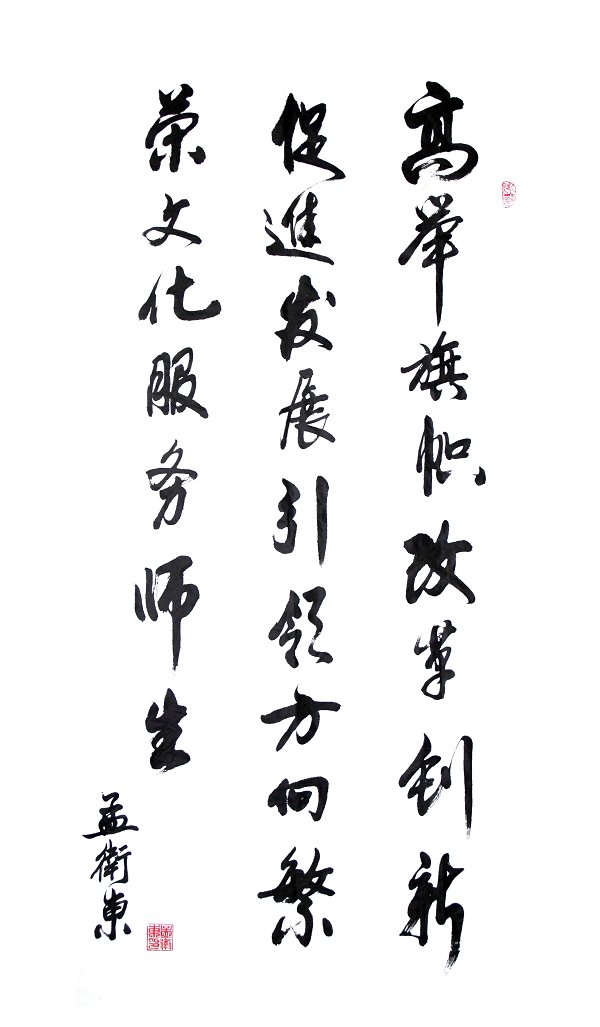 高举旗帜改革创新
促進发展引领方向繁
荣文化服务师生
孟衛東